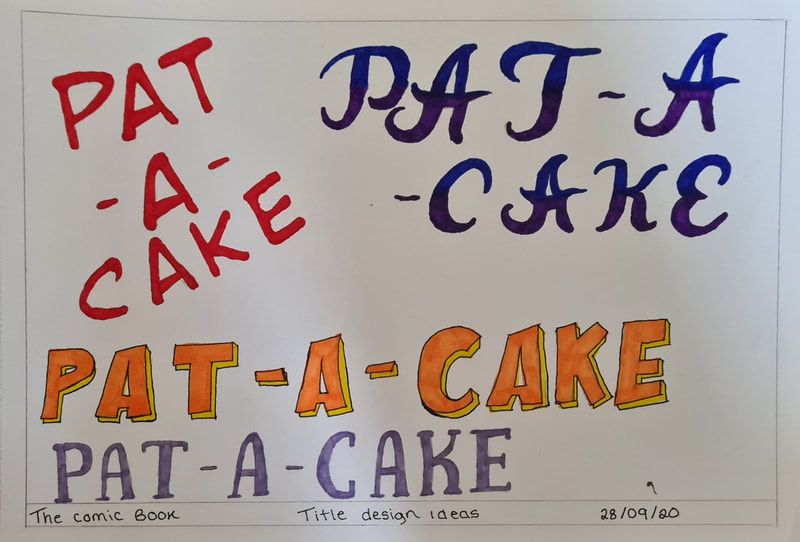 PAT
-A-
CAKE
PAT-A
-CAKE
PAT-A-CAKE
PAT-A-CAKE
The comic Book Title design ideas 28/09/20